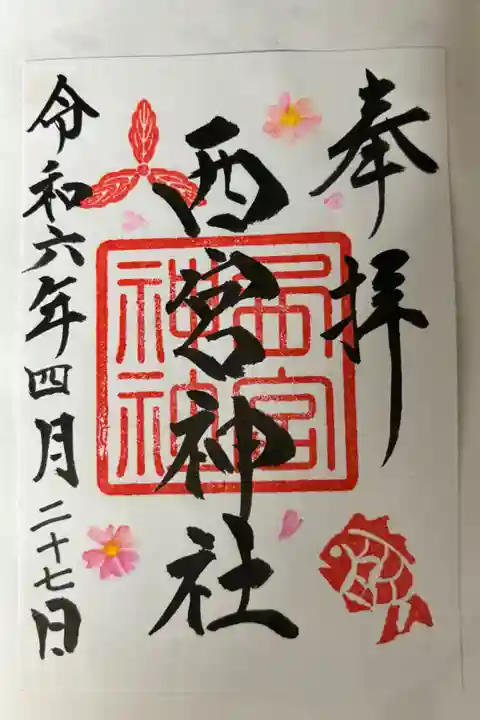 奉拝
西宮神社
西宮神社
令和六年四月二十七日